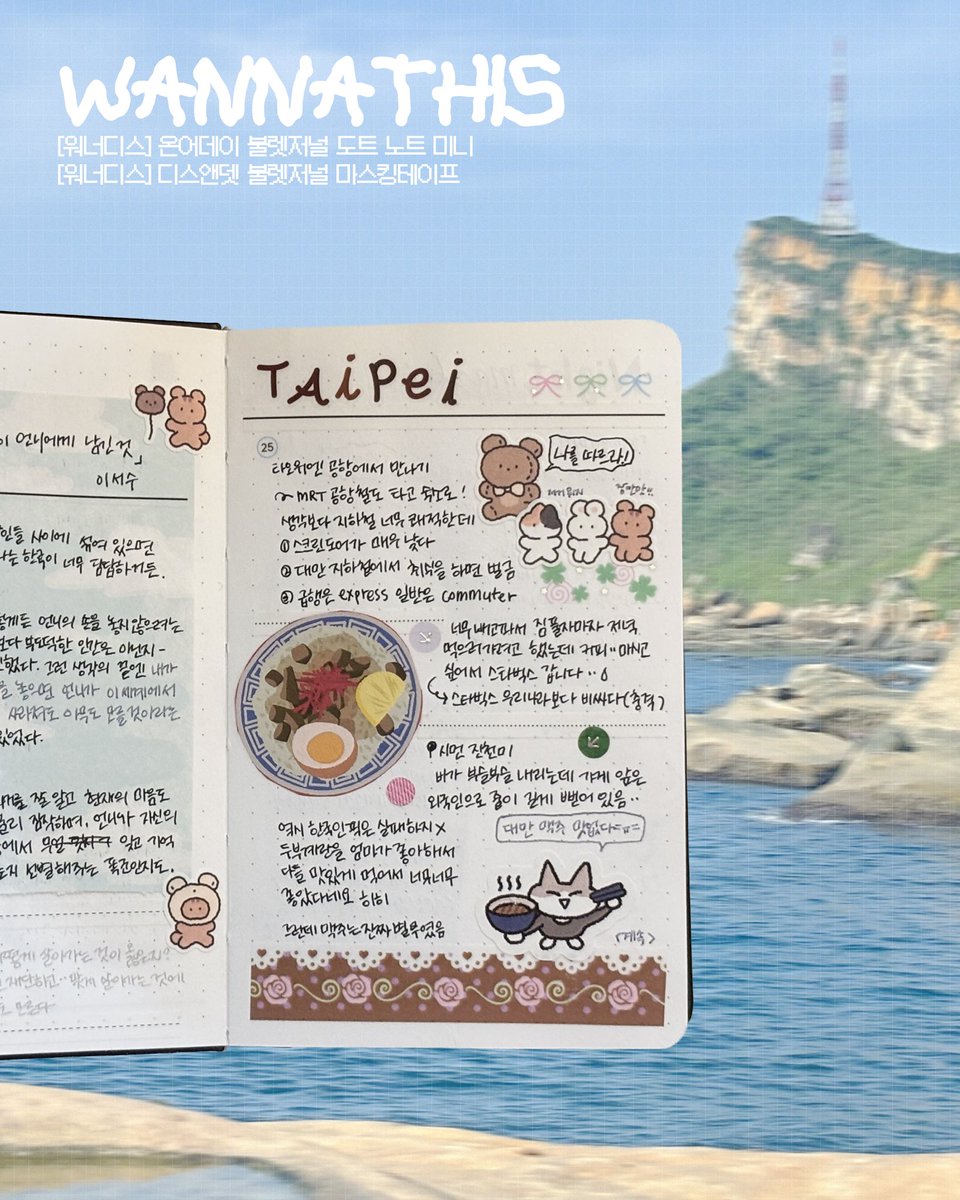 WANNATHIS
[워너디스] 온어데이 불렛저널 도트 노트 미니
[워너디스] 디스앤뎃 불렛저널 마스킹테이프
이 언니에게 남긴 것」
이서수
인들 사이에 섞여 있으면
나는 한국이 너무 답답하거든.
떻게든 언니의 손을 놓지 않으려는
보다 부도덕한 인간도 이번지-
했다. 그런 생각의 끝엔 내가
을 놓으면 언니가 이 세계에서
사라져도 아무도 모를 것이라는
있었다.
잘 알고 현재의 마음도
언니가 자신의
에서 않고 기억
선별해주는 폭군인지도.
떻게 살아가는 것이 옳은지?
맞게 살아가는 것에
도 모른다
TAiPei
25
타오위엔 공항에서 만나기
MRT 공항철도 타고 숙소로!
생각보다 지하철 너무 쾌적한데
① 스크린도어가 매우 낮다
② 대만 지하철에서 취식을 하면 벌금
③ 급행은 express 일반은 commuter
나를 따르라!
너무 배고파서 짐 풀자마자 저녁
먹으러가려고 했는데 커피.. 마시고
싶어서 스타벅스 갑니다..
스타벅스 우리나라보다 비싸다 (충격)
시먼 진천미
비가 부슬부슬 내리는데 가게 앞은
외국인으로 줄이 길게 뻗어 있음..
역시 한국인 픽은 실패하지 X
두부계란을 엄마가 좋아해서
다들 맛있게 먹어서 너무너무
좋았다네요 히히
그런데 맥주는 진짜 별루였음
대만 맥주 맛없다=ㅠ=
<계속>